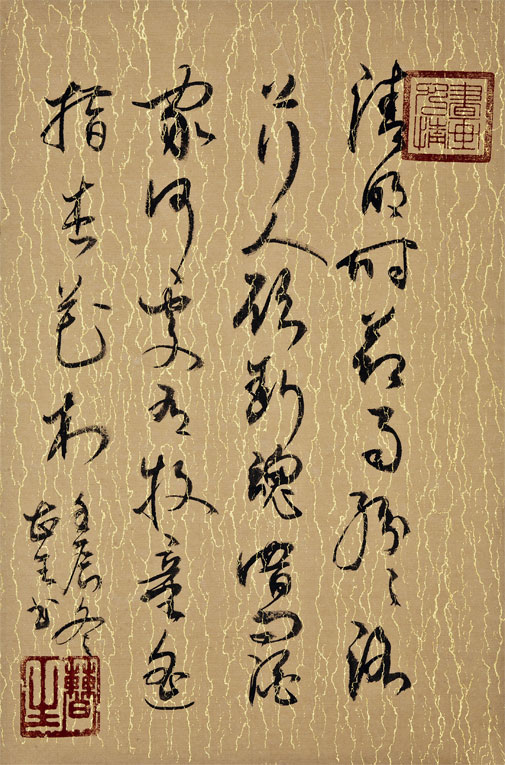 清明時節雨紛紛路
上行人欲斷魂借問酒
家何處有牧童遙
指杏花村
壬辰冬